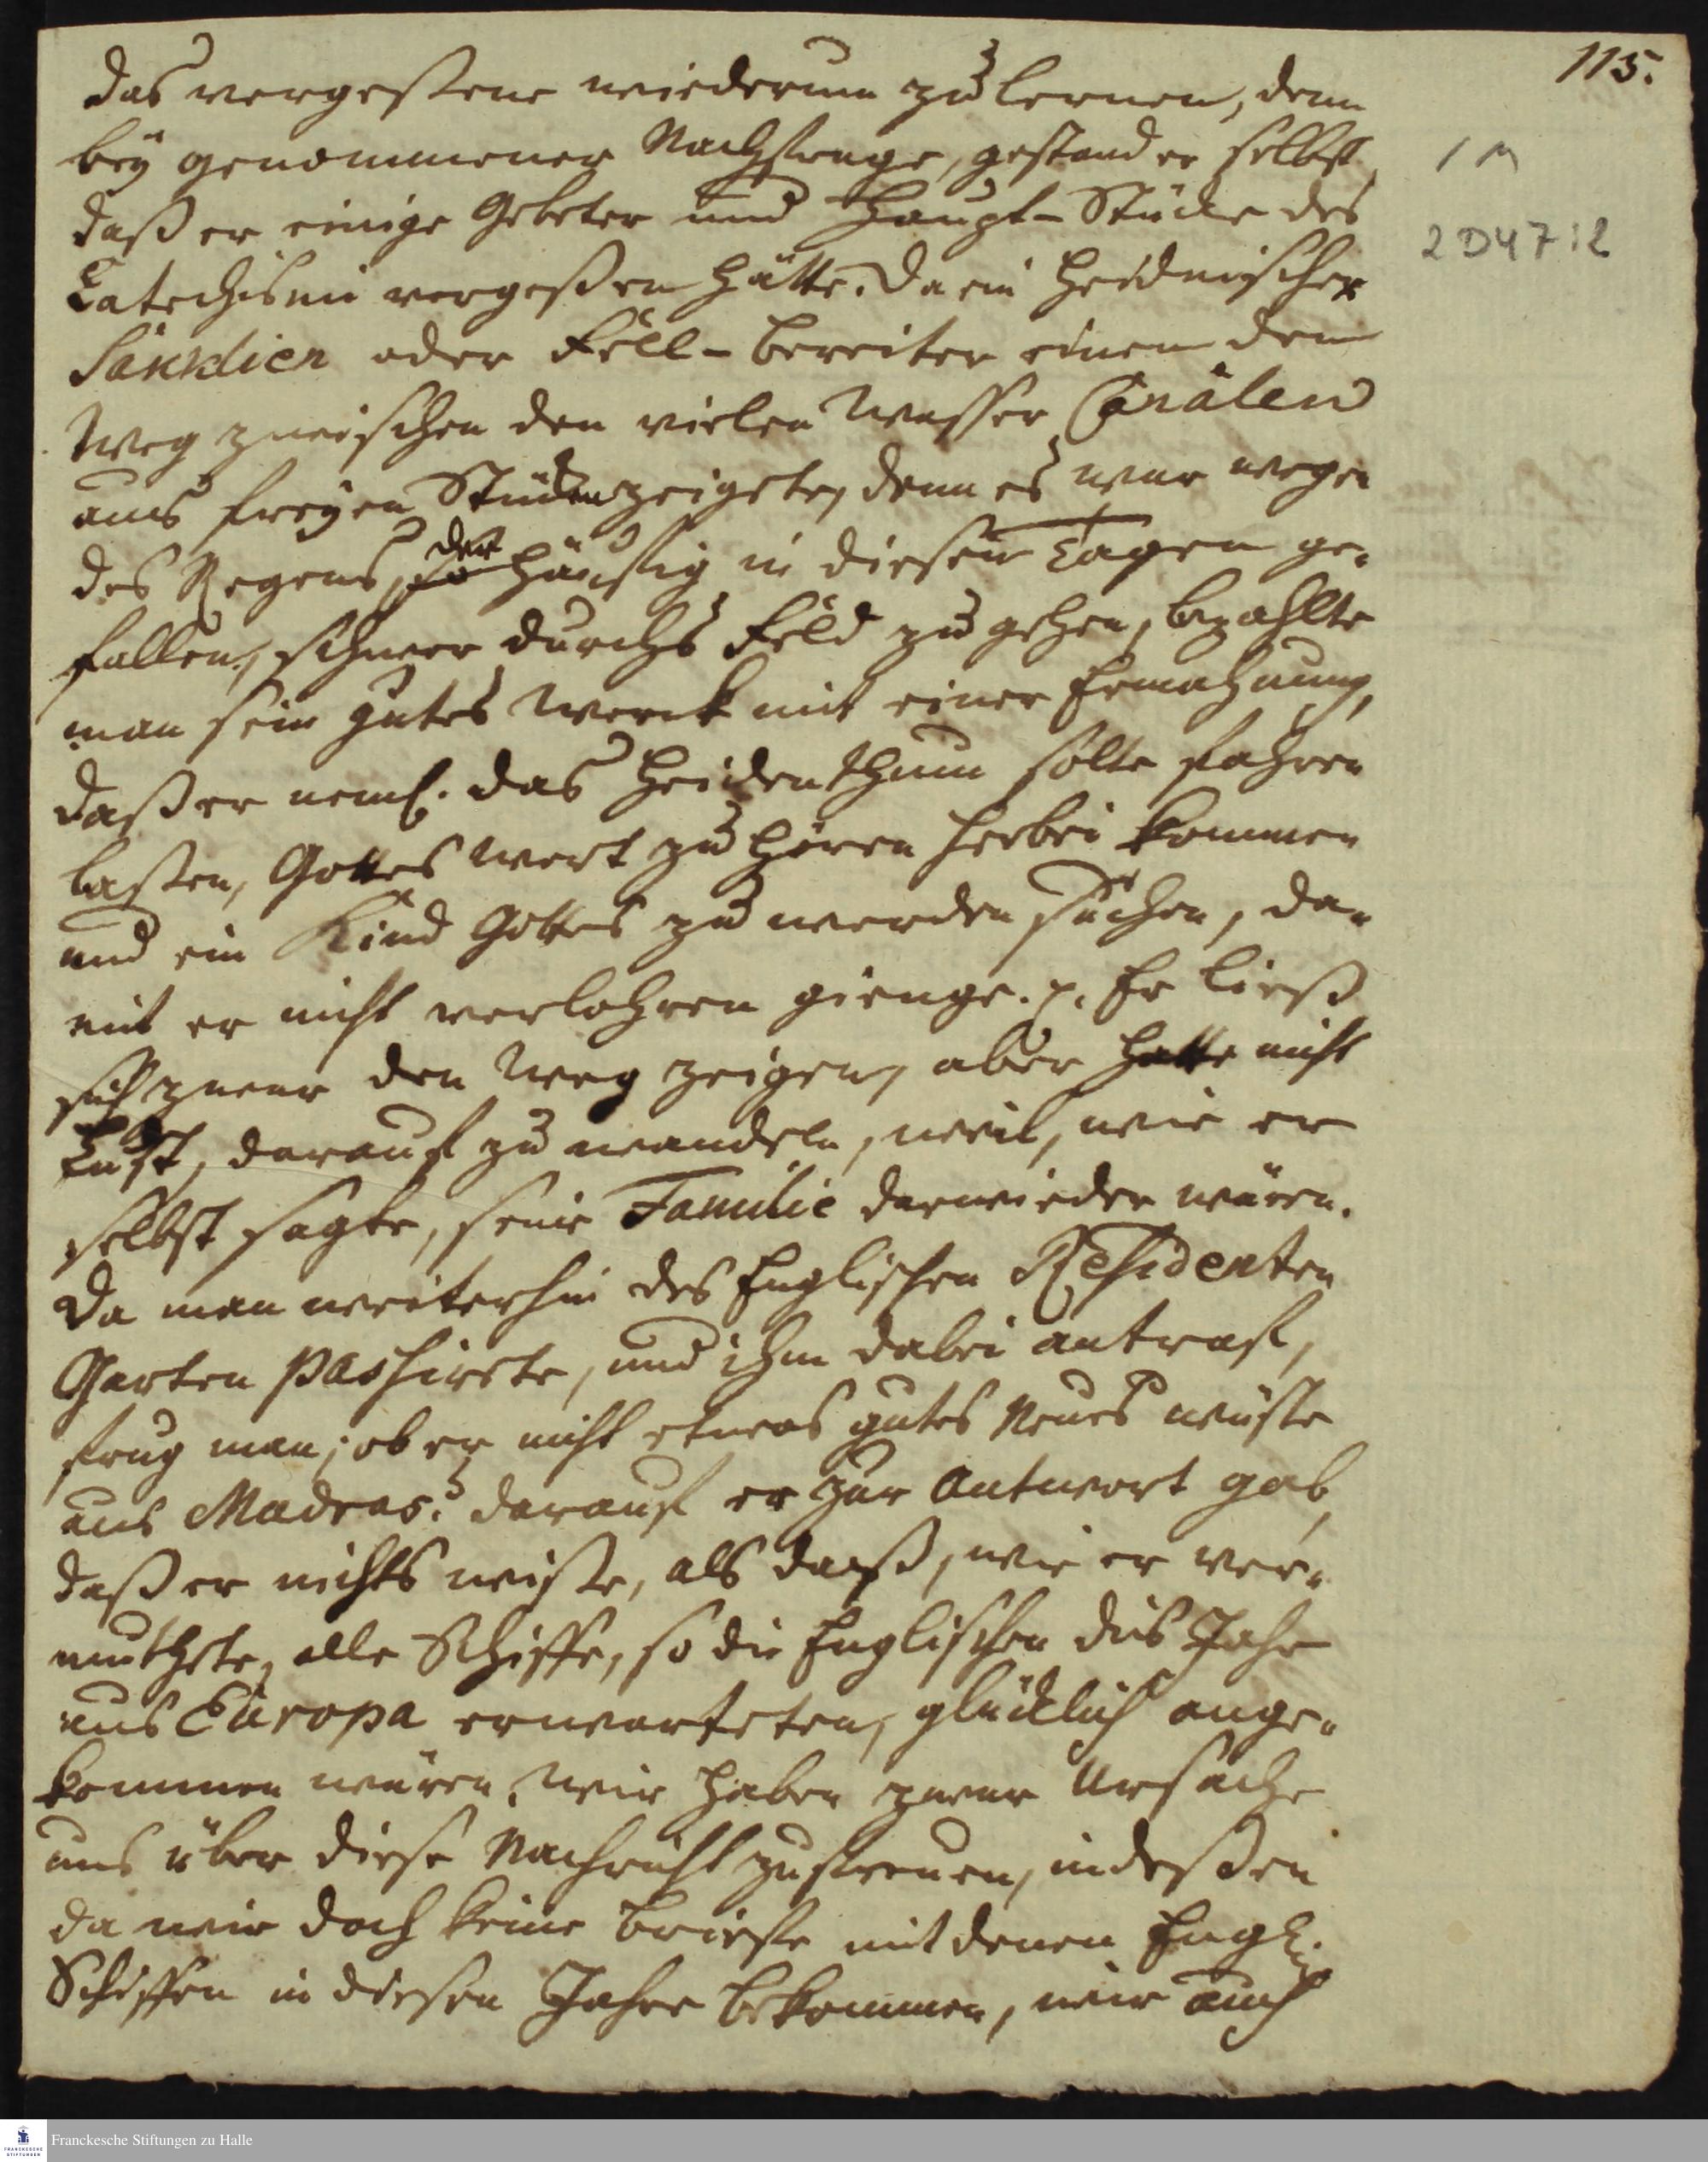 115.
das vergeßene wiederum zu lernen, denn
bey genommener Nachfrage, gestand er selbst,
daß er einige Gebeter und Haupt-Stücke des
Catechismi vergeßen hätte. Da ein Heidnischer
Säkkdier oder Fell-bereiter einem den
Weg zwischen den vielen Wasser Canälen
aus freyen Stücken zeigete, denn es war wegen
des Regens, der häufig in diesen Tagen ge-
fallen, schwer durchs Feld zu gehen, bezahlte
man sein gutes Werck mit einer Ermahnung,
daß er neml. das Heidenthum solte fahren
laßen, Gottes Wort zu hören herbei kommen
und ein Kind Gottes zu werden suchen, da-
mit er nicht verlohren gienge. p. Er ließ
sich zwar den Weg zeigen, aber hatte nicht
Lust, darauf zu wandeln, weil, wie er
selbst sagte, seine Familie darwieder wären.
Da man weiterhin des Englischen Residenten
Garten passirete, und ihm dabei antraf,
frug man; ob er nicht etwas gutes Neues wüste
aus Madras? darauf er zur Antwort gab,
daß er nichts wiße, als daß, wie er ver-
muthete, alle Schiffe, so die Englischen dis Jahr
aus Europa erwarteten, glücklich ange-
kommen wären. Wir haben zwar Ursache
uns über diese Nachricht zu freuen, indeßen
da wir doch keine Briefe mit denen Engl.
Schiffen in diesen Jahre bekommen, wir auch
1 M
2 D47:2
Franckesche Stiftungen zu Halle